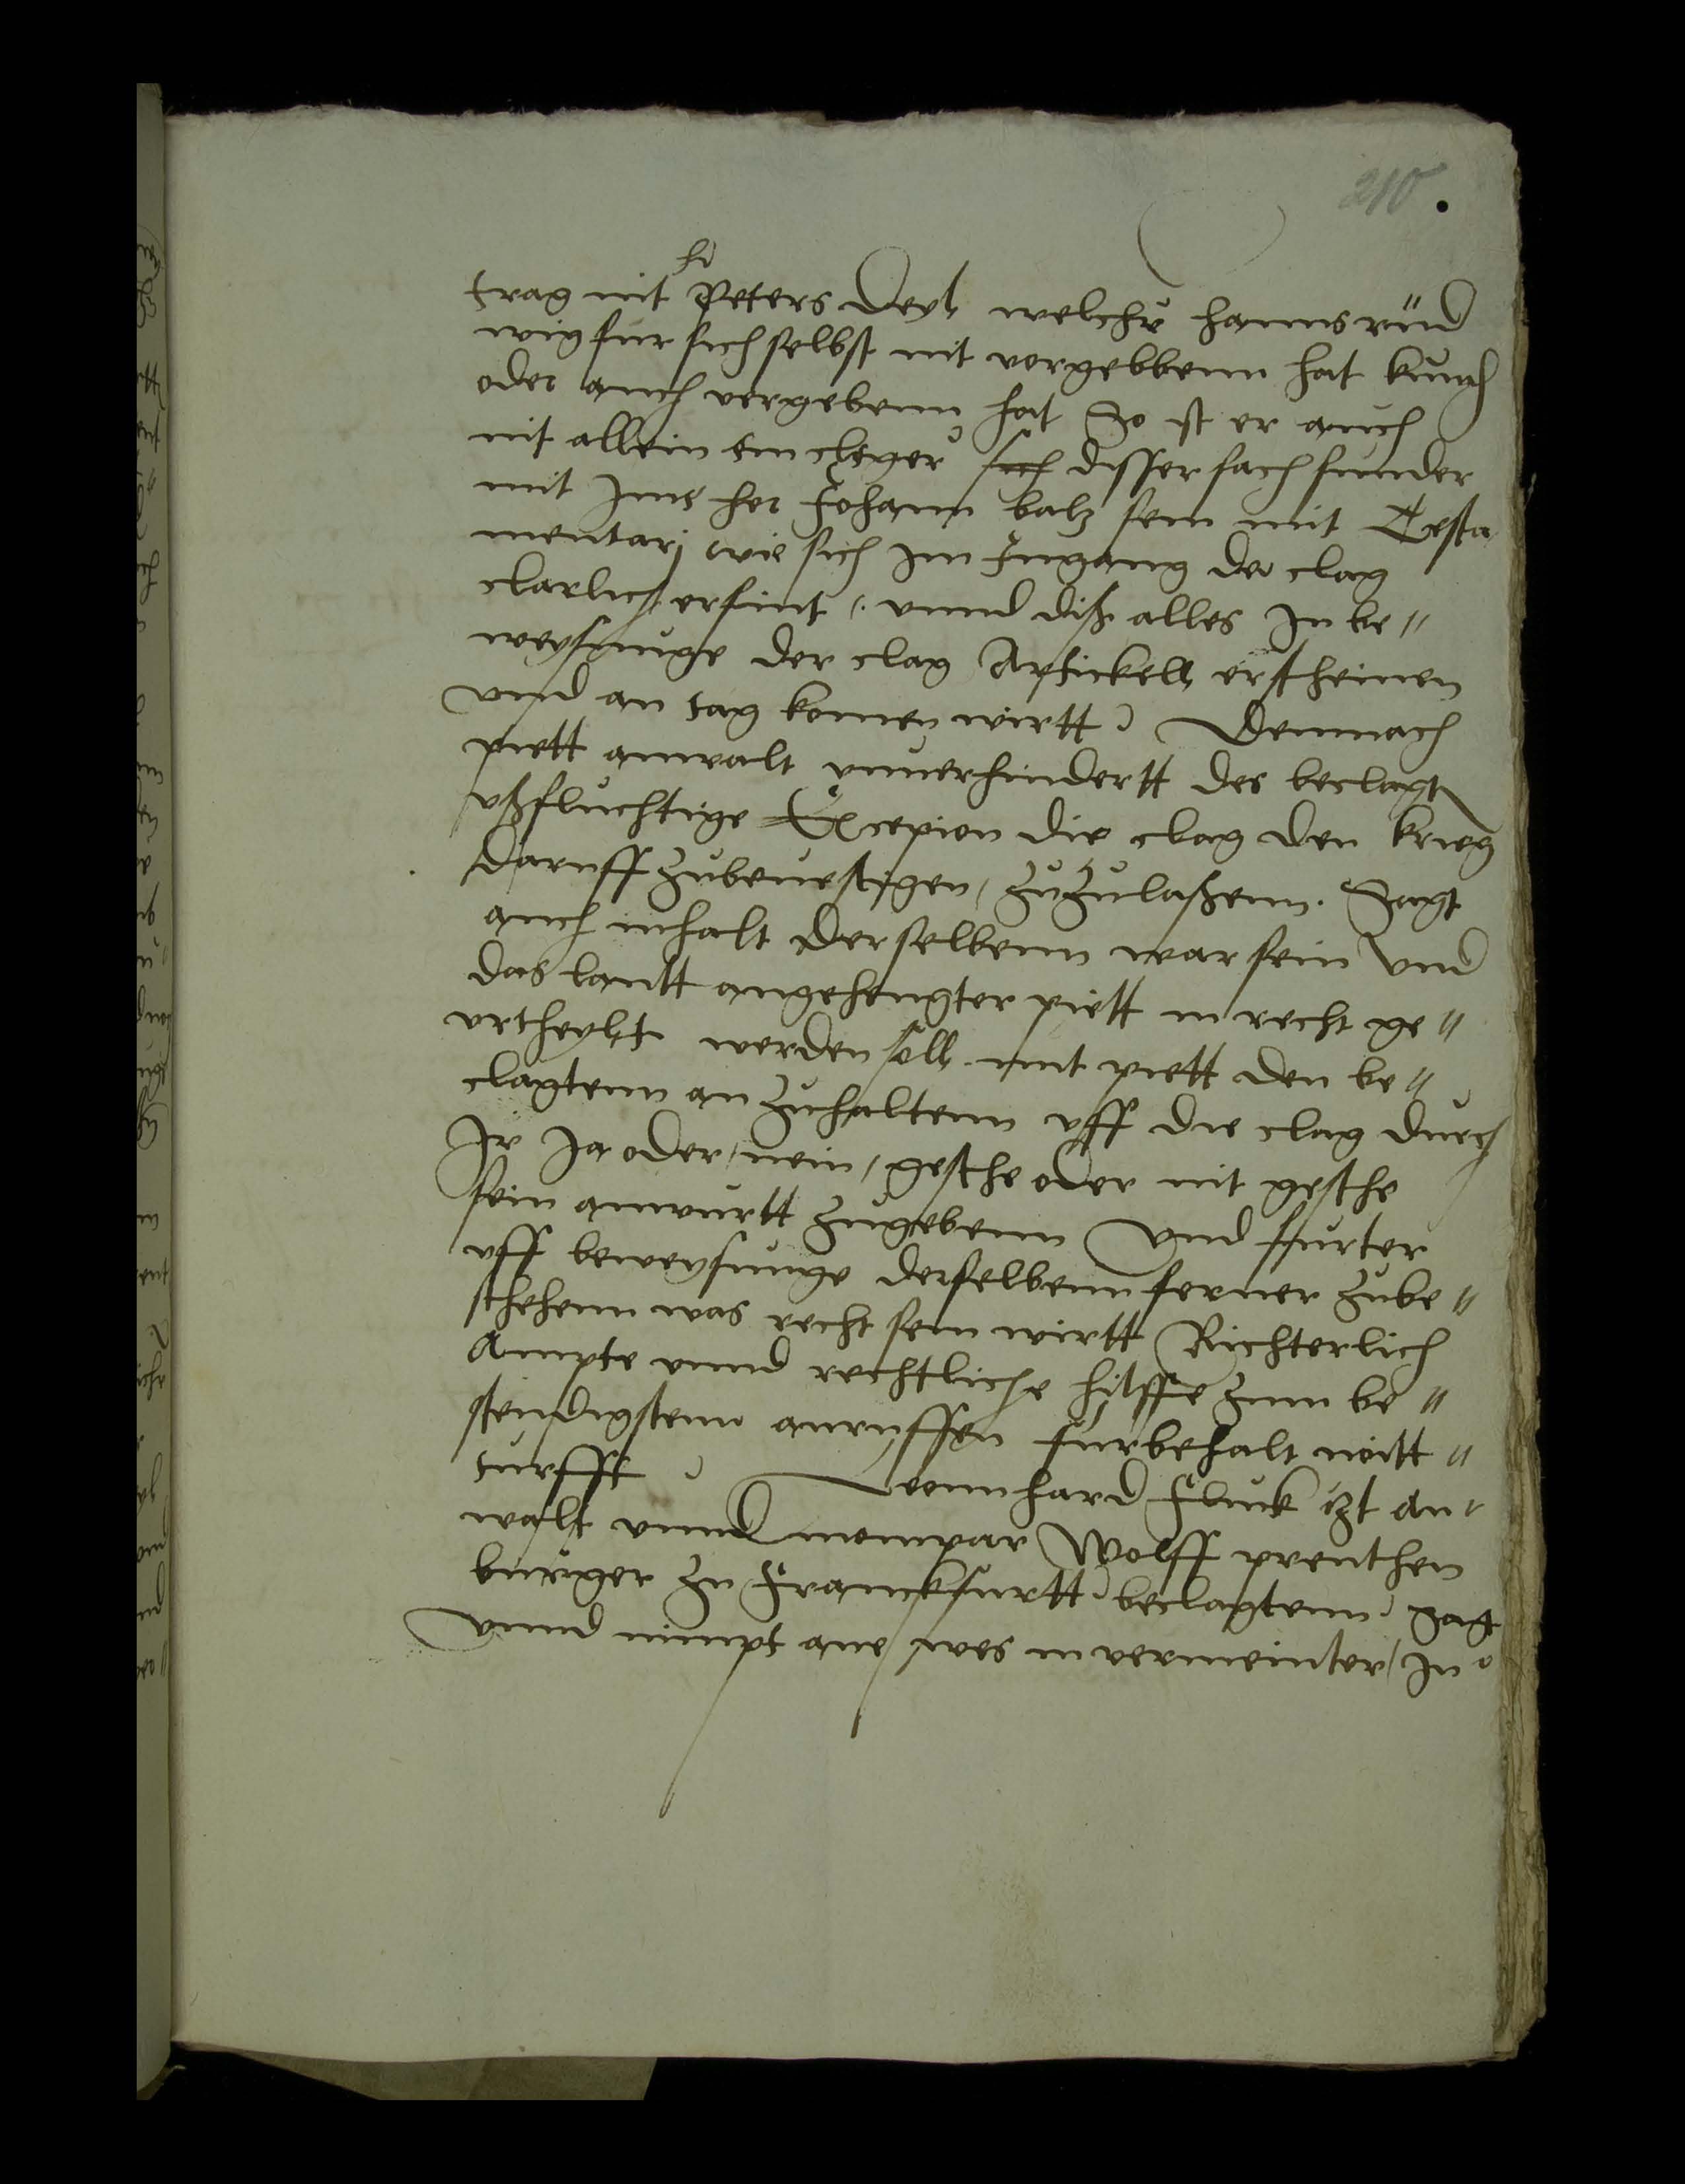 210.
trag mit h Peters deyl welchr hanns rüd
wig fur sich selbst nit vorgebbenn hat kundh
oder auch vergebenn hat So ist er auch
nit allein ein cleger disser sach sunder
mit Ime her Johann balz sein mit Testa
mentarj wie sich Im Ingang der clag
clarlich erfint, vnnd diß alles In be"
weysunge der clag Artickell erscheinen
vnd an tag komen wirtt Demnach
piett anwalt vnuerhindertt des beclagt
vßfluchtige Excepion die clag den krieg
daruff zubeuestigen, zuzulaßenn. Sagt
auch inhalt derselbenn war sein vnd
das lautt angehengter piett in recht ge"
vrtheylt werden soll mit piett den be"
clagtenn an zuhaltenn vff die clag durch
Ir Ja oder nein, gesche oder nit gesche
sein antwurtt zugebenn Vnd ffurter
vff beweysunge derselbenn ferner zube"
schehenn was recht sein wirtt Richterlich
Ampte vnnd rechtliche hilffe zum be"
stendigstenn anruffen furbehalt nott"
turfft Leonhard Fluck itzt an"
walt vnnd Wolff prenthen
burger zu Franckfurtt beclagtenn Sagt
vnnd nimpt ane wes in vermeinter In"